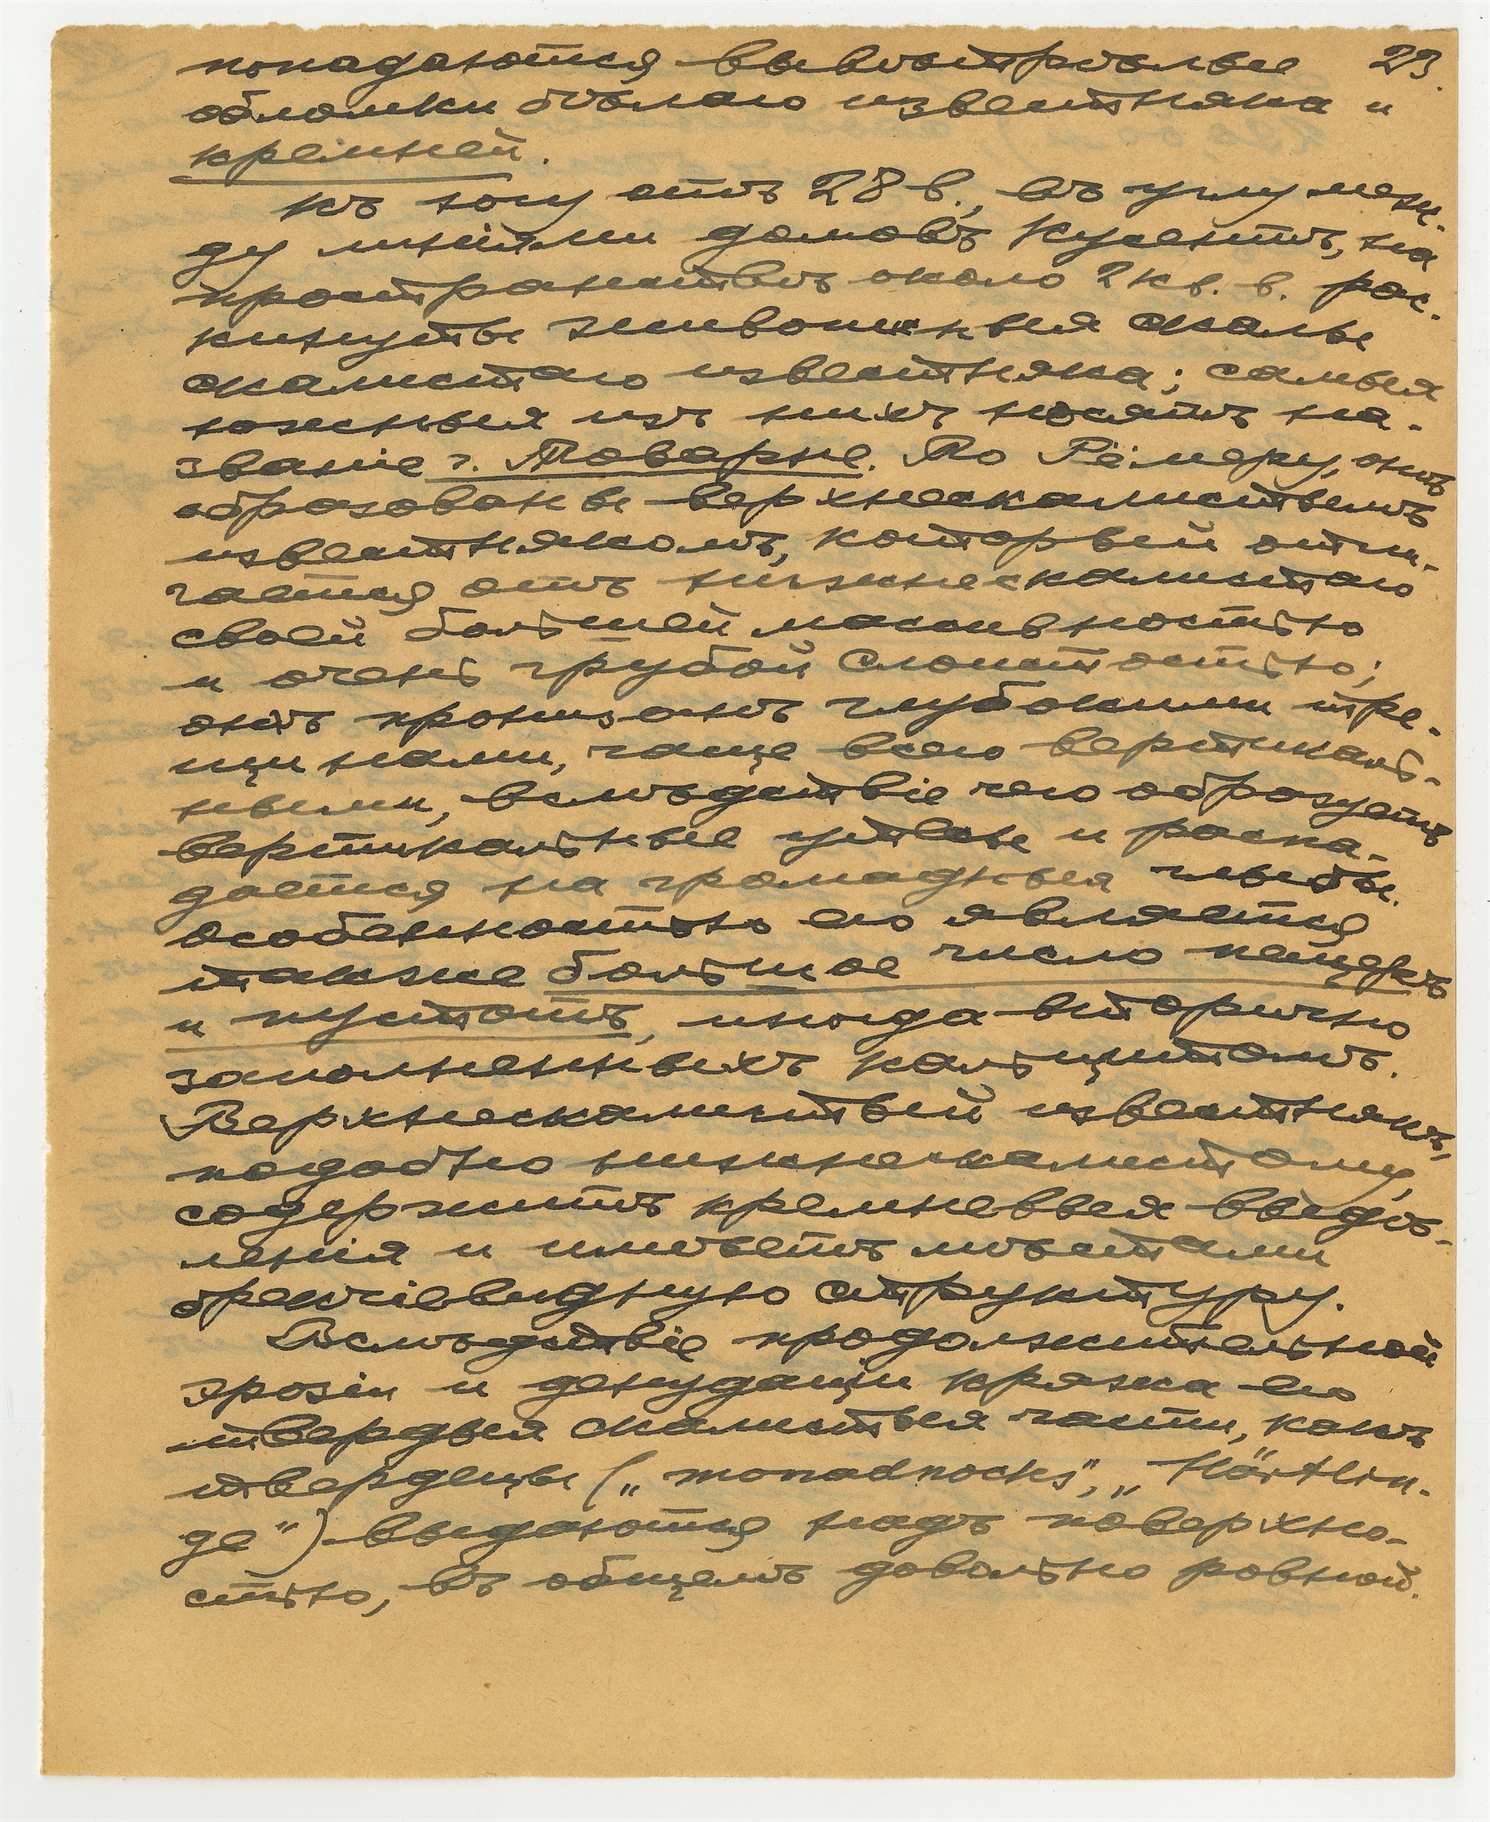 попадаются вывѣтрѣлые 23.
обломки бѣлаго известняка и
кремней.
Къ югу отъ 28 в., въ углу меж-
ду линіями домовъ Кусентъ, на
пространствѣ около 2 кв. в. рас-
кинуты живописныя скалы
скалистаго известняка; самыя
южныя изъ нихъ носятъ на-
званіе г. Товарне. По Рёмеру, онѣ
образованы верхнескалистымъ
известнякомъ, который отли-
чается отъ нижнескалистаго
своей большей массивностью
и очень грубой слоистостью;
онъ пронизанъ глубокими тре-
щинами, чаще всего вертикаль-
ными, вслѣдствіе чего образуетъ
вертикальные утесы и распа-
дается на громадныя глыбы.
Особенностью его является
также большое число пещеръ
и пустотъ, иногда вторично
заполненныхъ кальцитомъ.
Верхнескалистый известнякъ,
подобно нижнескалистому,
содержитъ кремневыя выдѣ-
ленія и имѣетъ мѣстами
брекчіевидную структуру.
Вслѣдствіе продолжительной
эрозіи и денудаціи кряжа его
твердыя скалистыя части, какъ
твердецы („monadnocks“, „Härtlin-
ge“) выдаются надъ поверхно-
стью, въ общемъ довольно ровной.